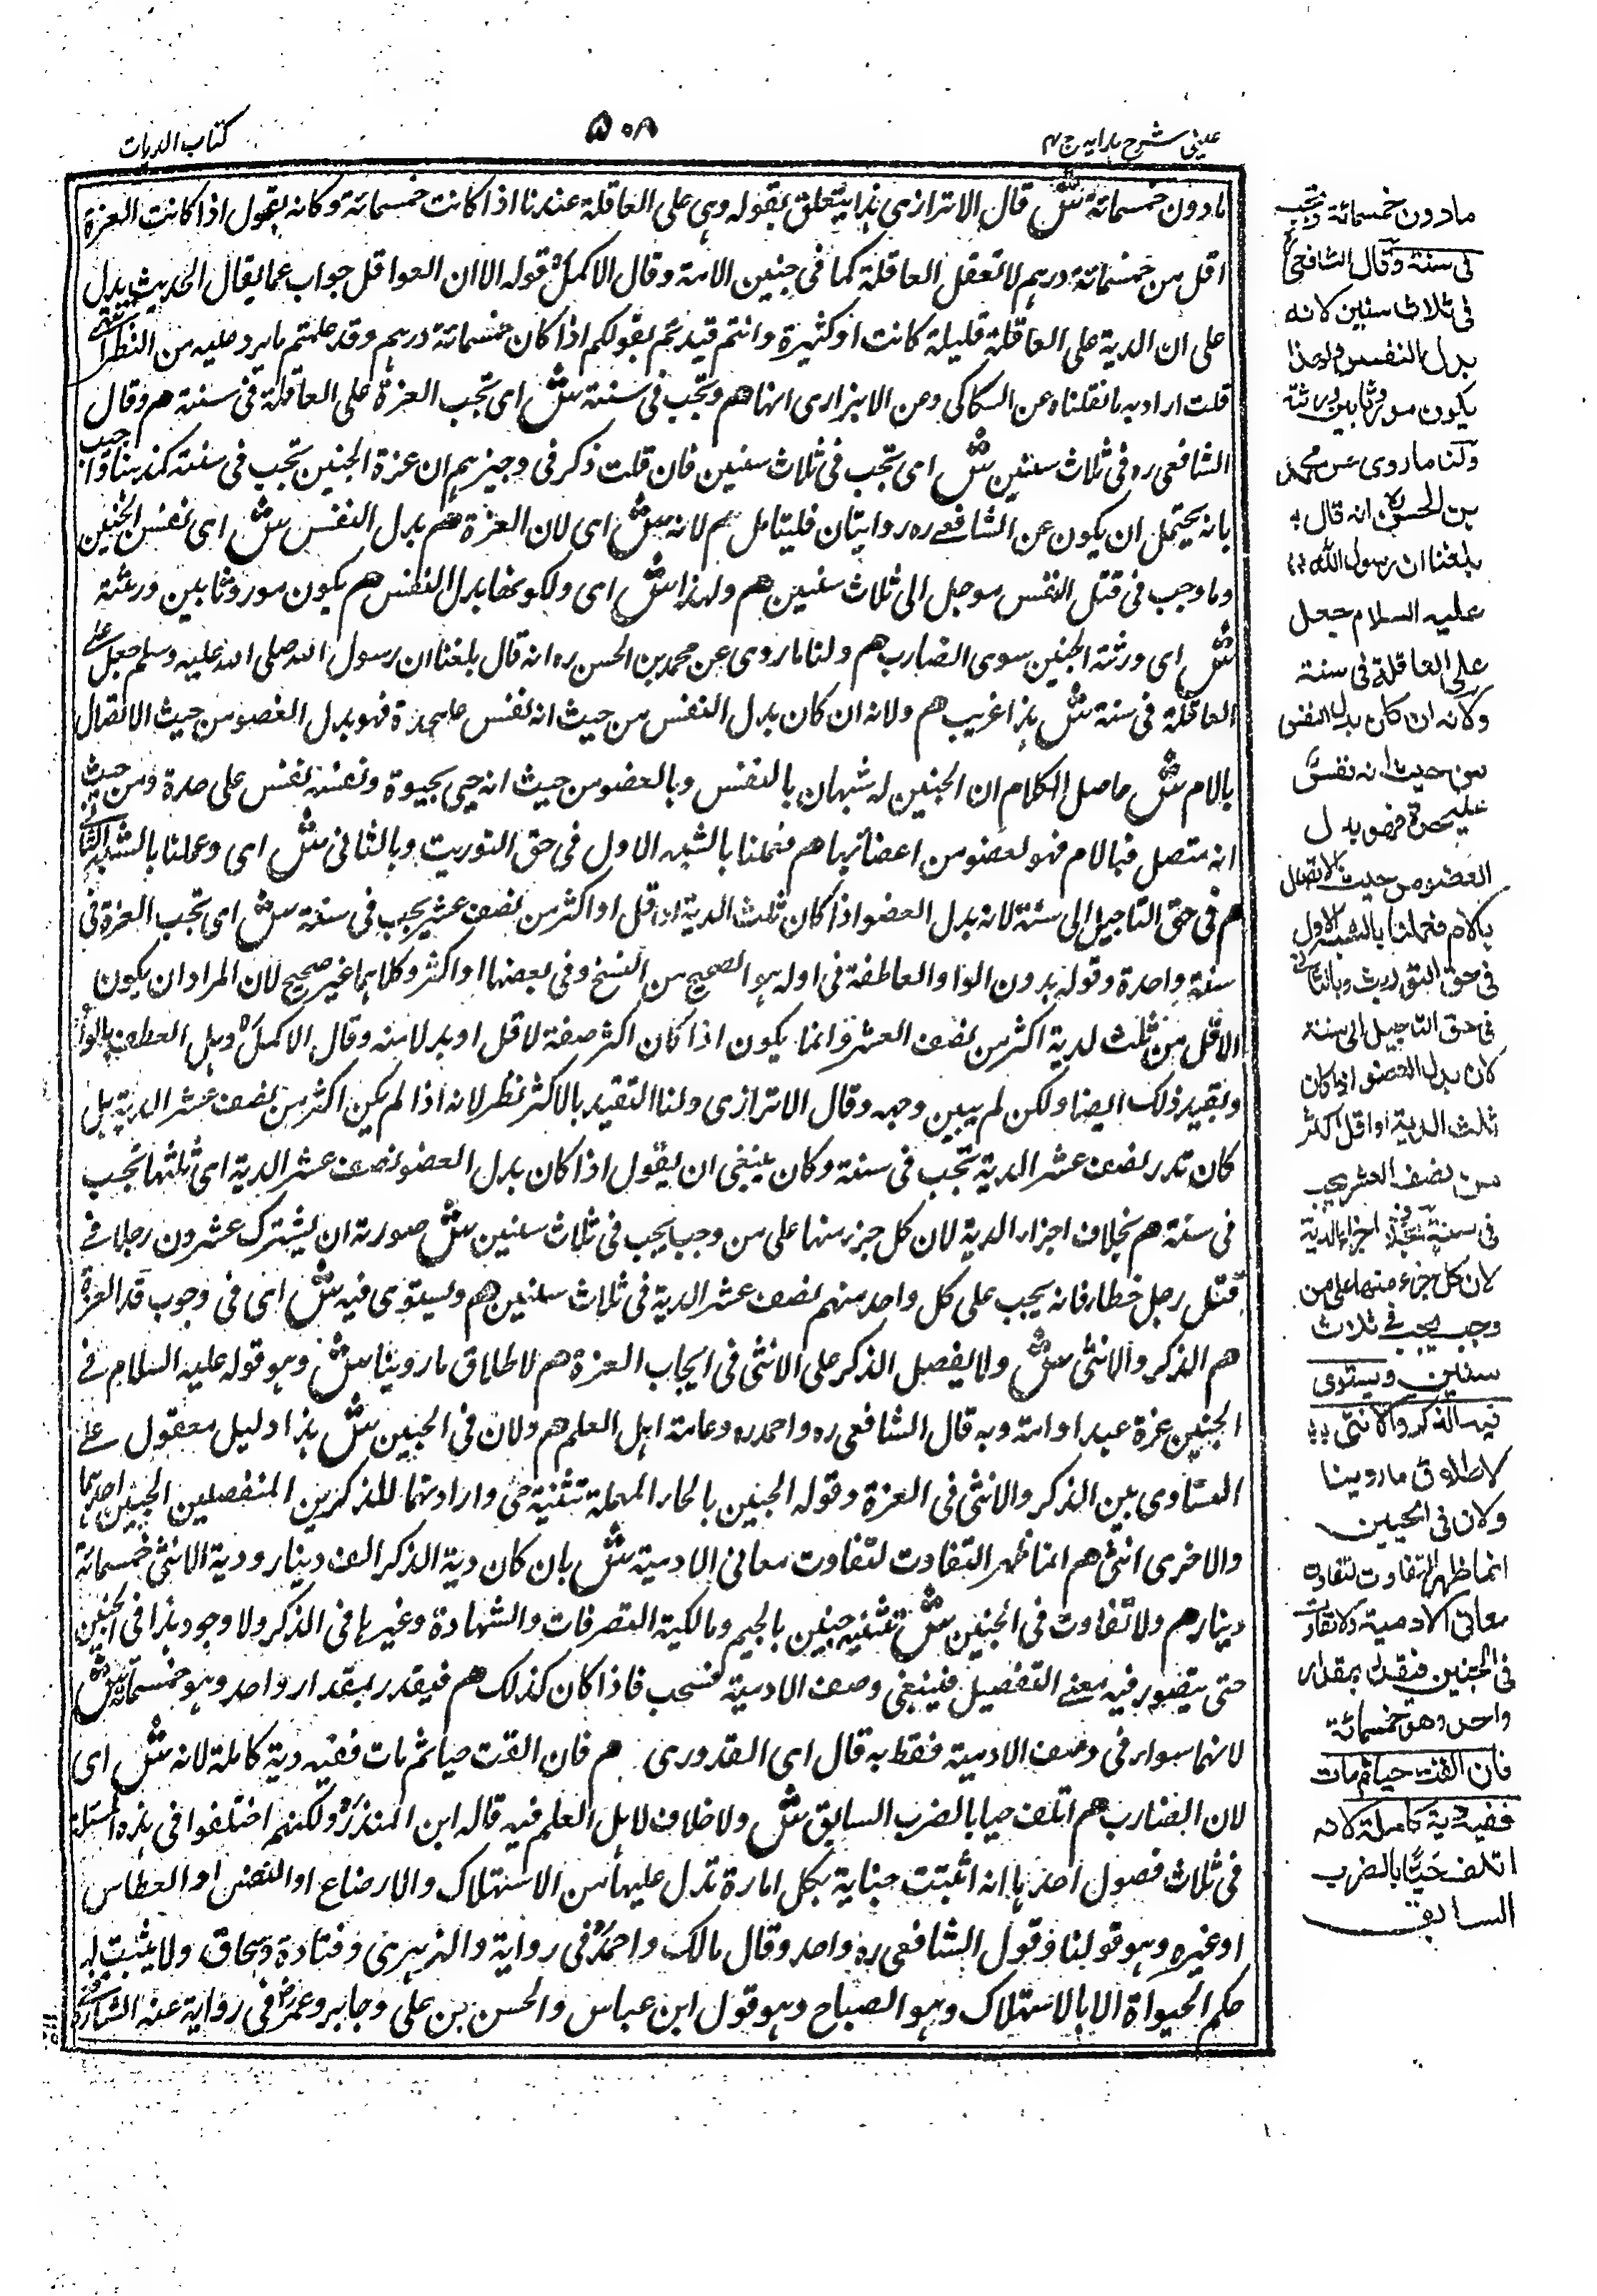 عینی شرح ہدایہ ج ۴
۵۰۸
کتاب الدیات
مادون خمسمائة ش قال الاترازی ہذا یتعلق بقوله وہی علی العاقلة عندنا اذا کانت خمسمائة وکانه یقول اذا کانت الغرة
اقل من خمسمائة درہم لا تعقل العاقلة کما فی جنین الامة وقال الاکمل قوله الا ان العواقل جواب عما یقال الحدیث یدل
علی ان الدیة علی العاقلة قلیلة کانت او کثیرة وانتم قیدتم بقولکم اذا کان خمسمائة درہم وقد علمتم ما یرد علیه من النظر انتہی
قلت اراد به ما نقلناه عن السکاکی وعن الابزاری انہا هم وتجب فی سنة ش ای تجب الغرة علی العاقلة فی سنة هم وقال
الشافعی ره فی ثلاث سنین ش ای تجب فی ثلاث سنین فان قلت ذکر فی وجیزہم ان غرة الجنین تجب فی سنة کمذہبنا واجیب
بانه یحتمل ان یکون عن الشافعے ره روایتان فلیتامل هم لانه ش ای لان الغرة هم بدل النفس ش ای نفس الجنین
وما وجب فی قتل النفس موجل الی ثلاث سنین هم ولہذا ش ای ولکونہا بدل النفس هم یکون موروثا بین ورثته
ش ای ورثة الجنین سوی الضارب هم ولنا ما روی عن محمد بن الحسن ره انه قال بلغنا ان رسول الله صلی الله علیه وسلم جعل علے
العاقلة فی سنة ش ہذا غریب هم ولانه ان کان بدل النفس من حیث انه نفس علیحدة فہو بدل العضو من حیث الاتصال
بالام ش حاصل الکلام ان الجنین له شبہان بالنفس وبالعضو من حیث انه حیی بحیوة ونفسه نفس علی حدة ومن حیث
انه متصل فبالام فہو لعضو من اعضائہا هم فعملنا بالشبه الاول فی حق التوریث وبالثانی ش ای وعملنا بالشبه الثانی
هم فی حق التاجیل الی سنة لانه بدل العضو اذا کان ثلث الدیة او اقل او اکثر من نصف عشر یجب فی سنة ش ای تجب الغرة فی
سنة واحدة وقوله بدون الواو العاطفة فی اوله ہو الصحیح من النسخ وفی بعضہا او اکثر وکلاہما غیر صحیح لان المراد ان یکون
الاقل من ثلث لدیة اکثر من نصف العشر وانما یکون اذا کان اکثر صفة لاقل او بدلا منه وقال الاکمل وہل العطف بالواو
وبقید ذلک ایضا ولکن لم یبین وجہه وقال الاترازی ولنا التقید بالاکثر نظر لانه اذا لم یکن اکثر من نصف عشر الدیة بل
کان قدر نصف عشر الدیة تجب فی سنة وکان ینبغی ان یقول اذا کان بدل العضو نصف عشر الدیة ای ثلثہا تجب
فی سنة هم بخلاف اجزاء الدیة لان کل جزء منہا علی من وجب یجب فی ثلاث سنین ش صورته ان یشترک عشرون رجلا فے
قتل رجل خطاء فانه یجب علی کل واحد منہم نصف عشر الدیة فی ثلاث سنین هم ویستوی فیه ش ای فی وجوب قدر الغرة
هم الذکر والانثی ش ولا یفصل الذکر علی الانثی فی ایجاب الغرة هم لاطلاق ما روینا ش وہو قوله علیه السلام فے
الجنین غرة عبد او امة وبه قال الشافعی ره واحمد ره وعامة اہل العلم هم ولان فی الجنین ش ہذا دلیل معقول علے
التساوی بین الذکر والانثی فی الغرة وقوله الجنین بالحاء المہملة تثنیة حی واراد بہما للذکرین المنفصلین الجنین احدہما
والاخری انثی هم انما ظہر التفاوت لتفاوت معانی الادمیة ش بان کان دیة الذکر الف دینار ودیة الانثی خمسمائة
دینار هم ولا تفاوت فی الجنین ش تثنیه جنین بالجیم ومالکیة التصرفات والشہادة وغیرہا فی الذکر ولا وجود ہذا فی الجنین
حتی یتصور فیه معنے التفصیل فینبغی وصف الادمیة فسحب فاذا کان کذلک هم فیقدر بمقدار واحد وہو خمسمائة ش
لانہما سواء فی وصف الادمیة فقط به قال ای القدوری هم فان القت حیا ثم مات ففیه دیة کاملة لانه ش ای
لان الضارب هم اتلف حیا بالضرب السابق ش ولا خلاف لاہل العلم فیه قاله ابن المنذر ولکنہم اختلفوا فی ہذه المسئلة
فی ثلاث فصول احدہا انه اثبتت جنایة بکل امارة تدل علیہا من الاستہلاک والارضاع او النفس او العطاس
او غیره وہو قولنا وقول الشافعی ره واحد وقال مالک واحمد فی روایة والزہری وقتادة واسحاق ولا یثبت له
حکم الحیواة الا بالاستہلاک وہو الصباح وہو قول ابن عباس والحسن بن علی وجابر وعمر فی روایة عنه
مادون خمسمائة وتجب
فی سنة وقال الشافعی
فی ثلاث سنین لانه
بدل النفس ولهذا
یکون موروثا بین ورثته
ولنا ما روی عن محمد
بن الحسن انه قال
بلغنا ان رسول الله
علیه السلام جعل
علی العاقلة فی سنة
ولانه ان کان بدل النفس
من حیث انه نفس
علیحدة فهو بدل
العضو من حیث الاتصال
بالام فعملنا بالشبه الاول
فی حق التوریث وبالثانی
فی حق التاجیل الی سنة
لان بدل العضو اذا کان
ثلث الدیة او اقل اکثر
من نصف العشر یجب
فی سنة بخلاف اجزاء الدیة
لان کل جزء منها علی من
وجب یجب فی ثلاث
سنین ویستوی
فیه الذکر والانثی
لاطلاق ما روینا
ولان فی الحیین
انما ظهر التفاوت لتفاوت
معانی الادمیة ولا تفاوت
فی الجنین فیقدر بمقدار
واحد وهو خمسمائة
فان القت حیا ثم مات
ففیه دیة کاملة لانه
اتلف حیًّا بالضرب
السابق